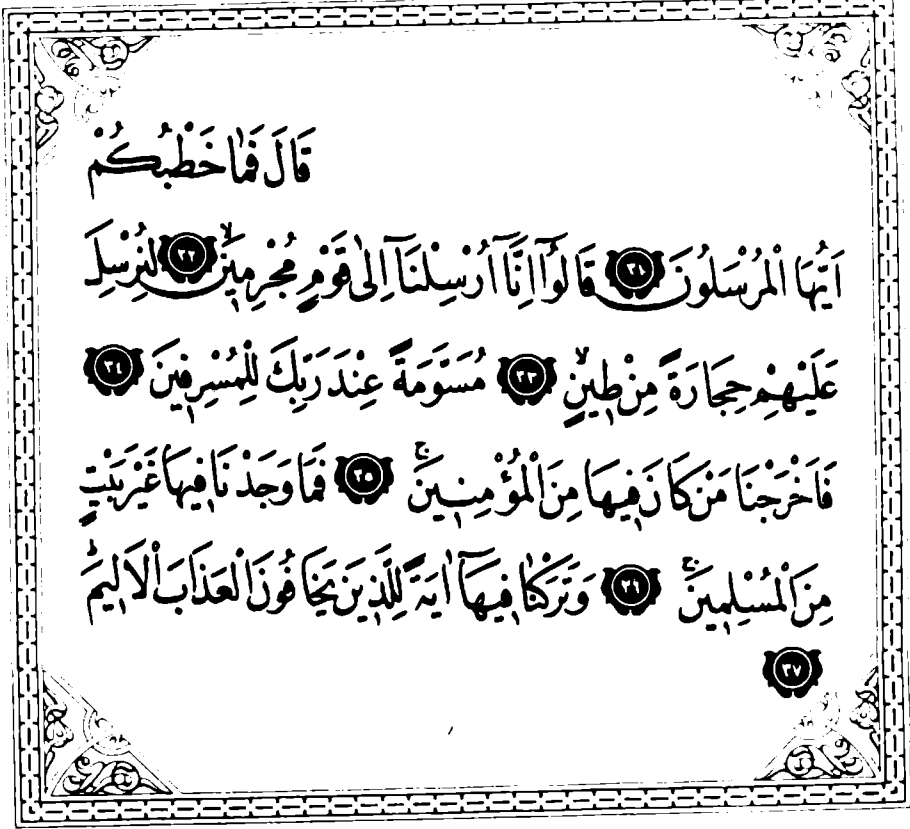 قَالَ فَمَا خَطْبُكُمْ
اَيُّهَا الْمُرْسَلُونَ ﴿٣١﴾ قَالُوٓا اِنَّٓا اُرْسِلْنَٓا اِلٰى قَوْمٍ مُجْرِمٖينَۙ ﴿٣٢﴾ لِنُرْسِلَ
عَلَيْهِمْ حِجَارَةً مِنْ طٖينٍۙ ﴿٣٣﴾ مُسَوَّمَةً عِنْدَ رَبِّكَ لِلْمُسْرِفٖينَ ﴿٣٤﴾
فَاَخْرَجْنَا مَنْ كَانَ فٖيهَا مِنَ الْمُؤْمِنٖينَۚ ﴿٣٥﴾ فَمَا وَجَدْنَا فٖيهَا غَيْرَ بَيْتٍ
مِنَ الْمُسْلِمٖينَۚ ﴿٣٦﴾ وَتَرَكْنَا فٖيهَٓا اٰيَةً لِلَّذٖينَ يَخَافُونَ الْعَذَابَ الْاَلٖيمَؕ
﴿٣٧﴾